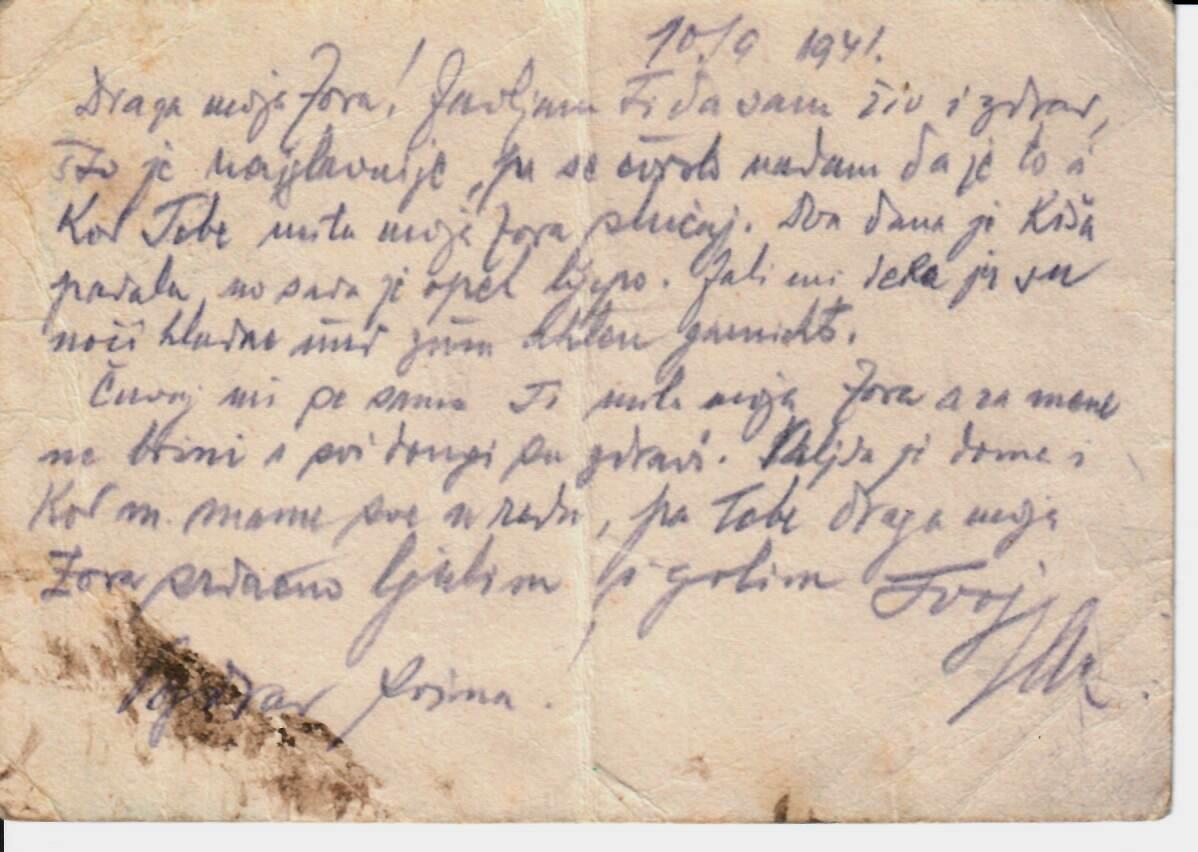 10/9 1941.
Draga moja Zora! Javljam Ti da sam živ i zdrav,
što je najglavnije, pa se čvrsto nadam da je to i
kod Tebe mila moja Zora slučaj. Dva dana je kiša
padala, no sada je opet lijepo. Fali mi deka jer su
noći hladne und zum garnichts.
Čuvaj mi se samo Ti mila moja Zora a za mene
ne brini i svi drugi su zdravi. Valjda je doma i
kod m. mame sve u redu, pa Tebe draga moja
Zora srdačno ljubim i grlim Tvoj